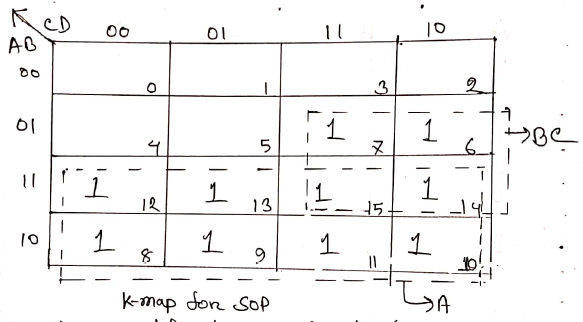 CD 00 01 11 10
AB
00 0 1 3 2
01 4 5 1 7 1 6 →BC
11 1 12 1 13 1 15 1 14
10 1 8 1 9 1 11 1 10
K-map for SOP →A